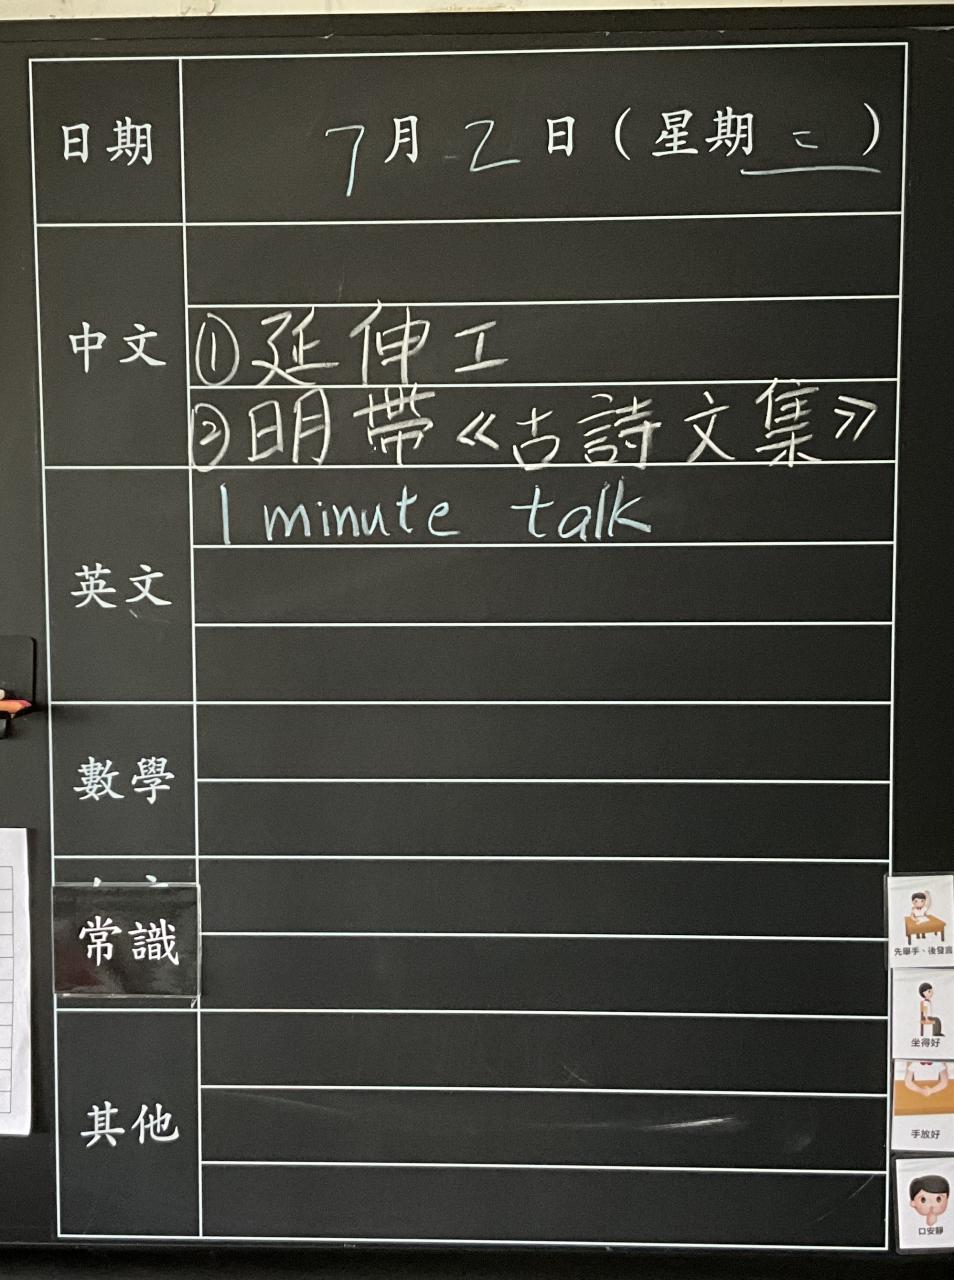 日期 7月2日（星期二）
中文
①延伸工
②明帶《古詩文集》
1 minute talk
英文
數學
常識
先舉手、後發言
坐得好
其他
手放好
口安靜